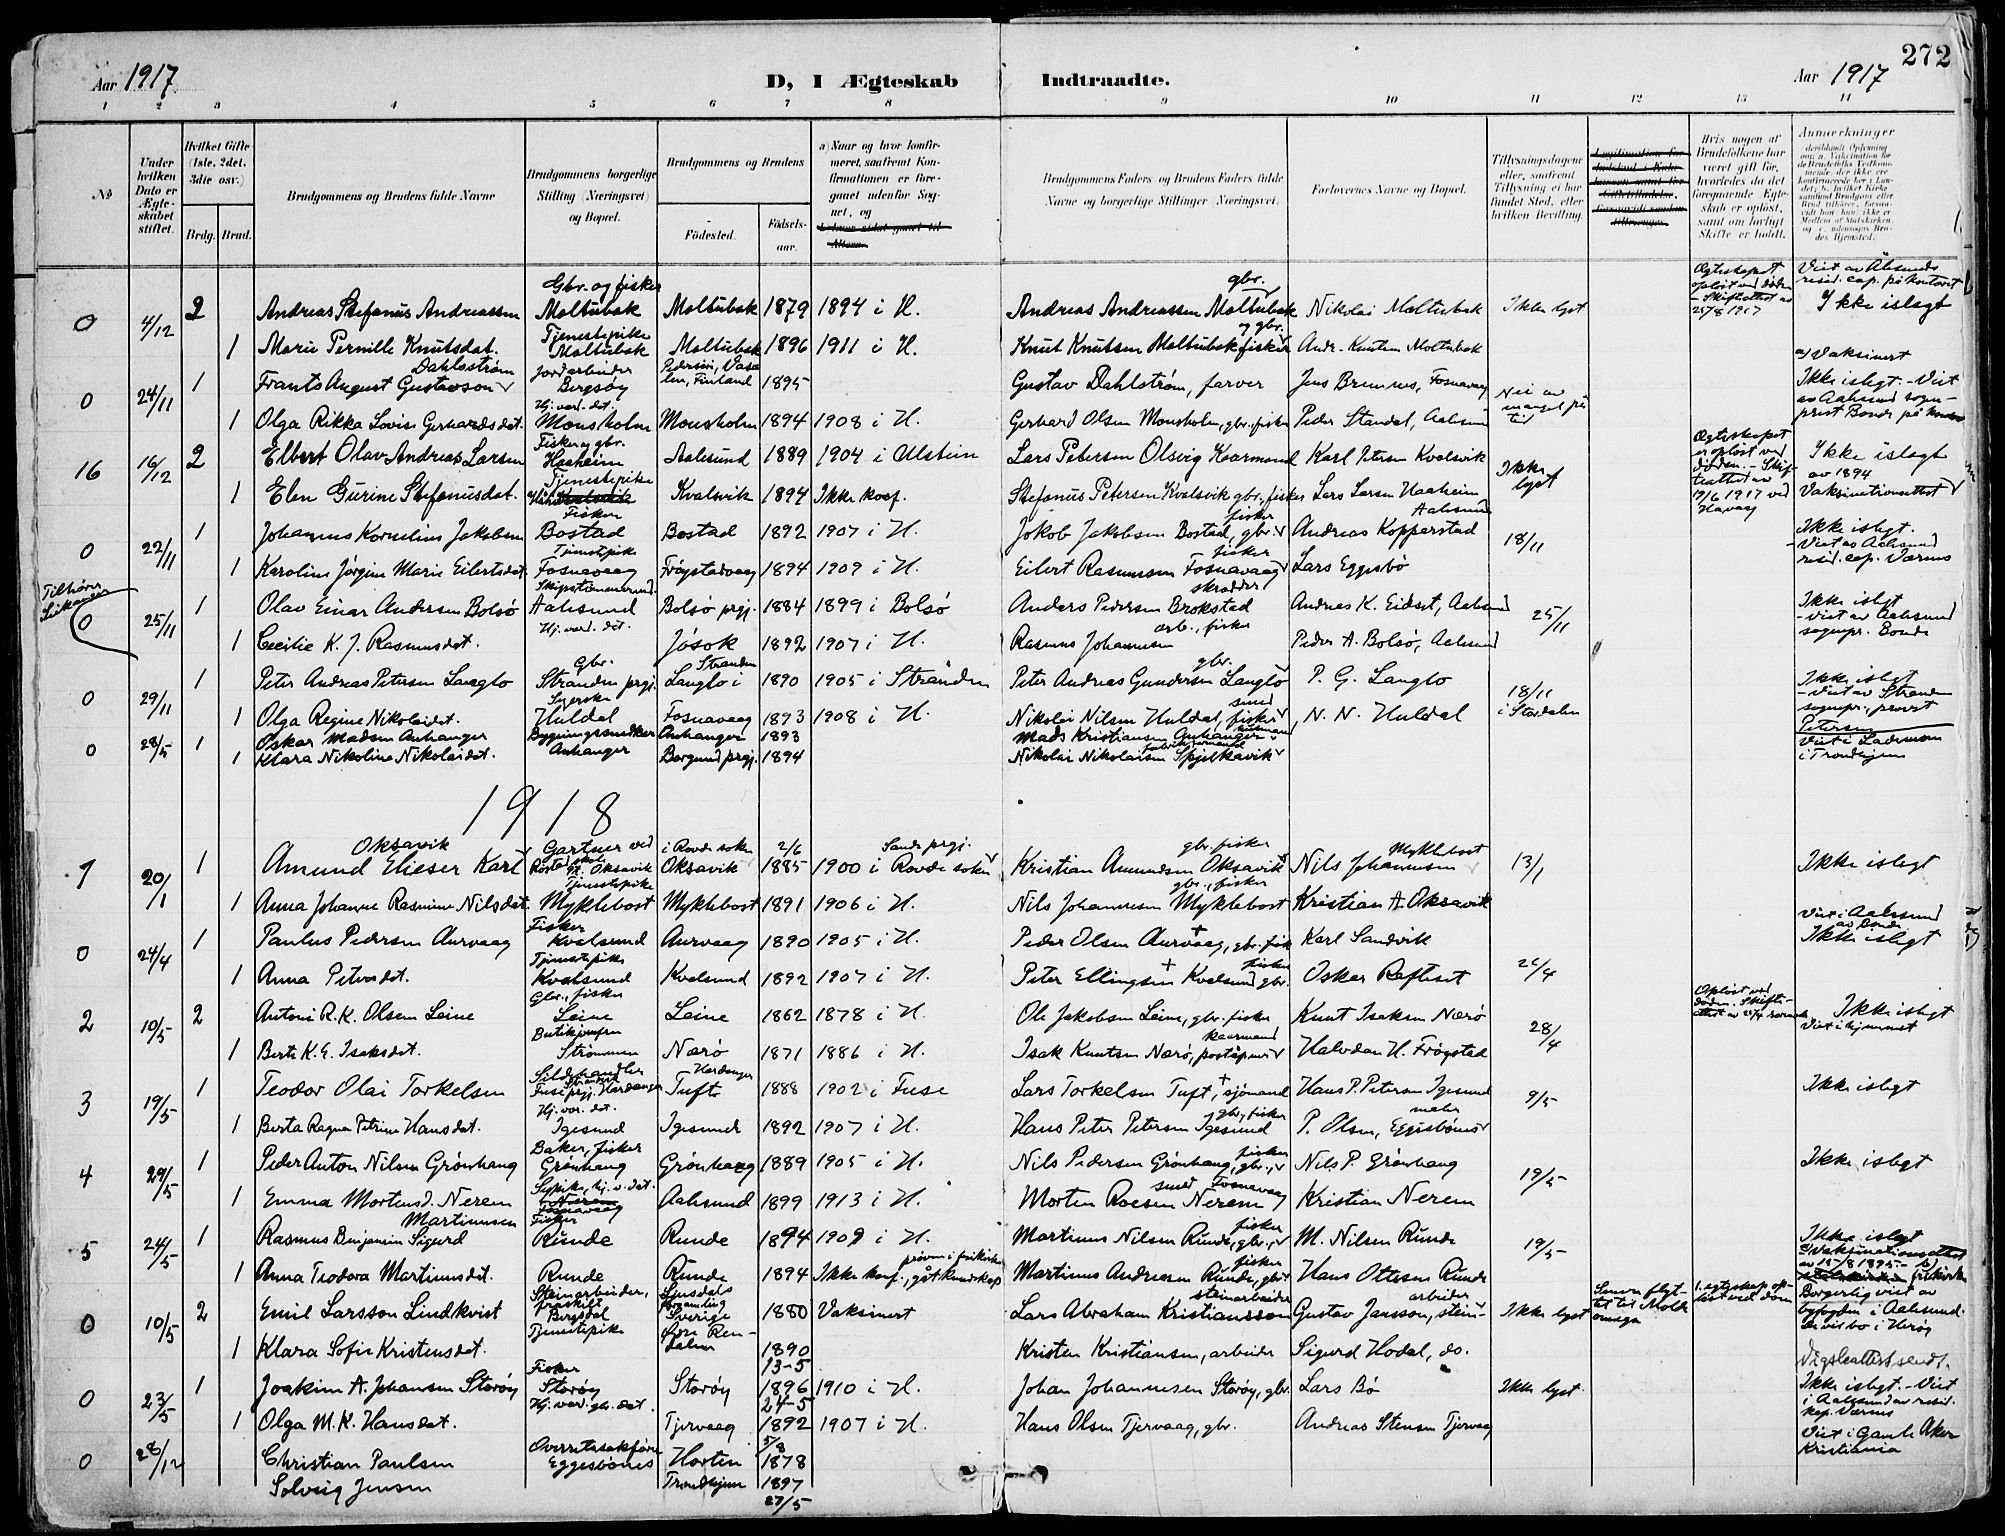 Aar 1917. D, I Ægteskab Indtraadte. Aar 1917 272
1 2 3 4 5 6 7 8 9 10 11 12 13 14
№
Under hvilken Dato er Ægteskabet stiftet.
Hvilket Gifte (1ste, 2det, 3die osv.)
Brdg. Brud.
Brudgommens og Brudens fulde Navne
Brudgommens borgerlige Stilling (Næringsvei) og Bopæl.
Brudgommens og Brudens
Fødested. Fødsels-aar.
a) Naar og hvor konfirmeret, saafremt Konfirmationen er foregaaet udenfor Sognet, og
Brudgommens Faders og Brudens Faders fulde Navne og borgerlige Stillinger Næringsvei.
Forlovernes Navne og Bopæl.
Tillysningsdagene eller, saafremt Tillysning ei har fundet Sted, efter hvilken Bevilling.
Hvis nogen af Brudefolkene har været gift før, hvorledes da det foregaaende Ægteskab er opløst, samt om lovligt Skifte er holdt.
Anmærkninger
Gbr. og fisker gbr. Ægteskapet opløst ved døden - Skifteattest av 25/8 1917 Viet av Ålesunds resid. cap. på kontoret
0 4/12 2 Andreas Stefanus Andreassen Moltubak Moltubak 1879 1894 i H. Andreas Andreassen Moltubak Nikolai Moltubak Ikke lyst Ikke islegt
1 Marie Pernille Knutsdat. Tjenestepike Moltubak Moltubak 1896 1911 i H. Knut Knutsen Moltubak fisker Andr. Knutsen Moltubak
Dahlstrøm Jordarbeider a) Vaksinert
0 24/11 1 Frants August Gustavson Bergsøy Finland 1895 Gustav Dahlstrøm, farver Jens Brunnes, Fosnavaag Nei av mangel på tid Ikke islegt. - Viet av Aalesund sogneprest Bonde på
1 Olga Rikka Lovise Gerhardsdat. Hj. vær. dat. Monsholm Monsholm 1894 1908 i H. Gerhard Olsen Monsholm, gbr. fisker Peder Standal, Aalesund
16 16/12 2 Elbert Olav Andreas Larsen Fisker, gbr. Haaheim Aalesund 1889 1904 i Ulstein Lars Petersen Olsvig Kaarmand Karl Petersen Kvalsvik Ikke lyst Ægteskapet er opløst ved døden. - Skifteattest av 19/6 1917 ved Havaag Ikke islegt av 1894 Vaksinationsattest
1 Elen Gurine Stefanusdat. Tjenestepike Kvalsvik 1894 Ikke konf. Stefanus Petersen Kvalsvik gbr. fisker Lars Larsen Haaheim
Fisker fisker Aalesund
0 22/11 1 Johannes Kornelius Jakobsen Bostad Bostad 1892 1907 i H. Jakob Jakobsen Bostad, gbr. Andreas Kopperstad 18/11 Ikke islegt. - Viet av Aalesund resid. cap. Varnus
1 Karoline Jørgine Marie Eilertsdat. Tjenestepike Fosnavaag Frøystadvaag 1894 1909 i H. Eilert Rasmussen Fosnavaag fisker Lars Eggesbø
Tilhører Leikanger Skipstømmermand. skrædder
0 25/11 1 Olav Einar Andersen Bolsø Aalesund Bolsø prgj. 1884 1899 i Bolsø Anders Pedersen Brokstad Andreas K. Eidset, Aalesund 25/11 Ikke islegt - viet av Aalesund sognepr. Bonde
1 Cecilie K. J. Rasmusdat. Hj. vær. dat. Jøsok 1892 1907 i H. Rasmus Johannesen arb., fisker Peder A. Bolsø, Aalesund
Gbr. Stranden gbr.
0 29/11 1 Peter Andreas Petersen Langlo Stranden prgj. Langlo i 1890 1905 i Stranden Peter Andreas Gundersen Langlo P. G. Langlo 18/11 i Stordalen Ikke islegt - viet av Stranden sognepr., provst Petersen
1 Olga Regine Nikolaidat. Syerske Huldal Fosnavaag 1893 1908 i H. Nikolai Nilsen Huldal, fisker smed N. N. Huldal
0 28/5 1 Oskar Madsen Anhanger Bygningssnedker Anhanger 1893 Mads Kristiansen Anhanger husmand Viet i Lademoen i Trondhjem
1 Klara Nikoline Nikolaidat. Anhanger Borgund prgj. 1894 Nikolai Nikolaisen Spjelkavik
1918
Oksavik Gartner ved i Rovde sokn 2/6 Sande prgj. gbr. fisker Myklebost
1 20/1 1 Amund Elieser Karl Oksavik Oksavik 1885 1900 i Rovde sokn Kristian Amundsen Oksavik Nils Johannesen 13/1 Ikke islegt
1 Anna Johanne Rasmine Nilsdat. Tjenestepike Myklebost Myklebost 1891 1906 i H. Nils Johannesen Myklebost gbr., fisker Kristian A. Oksavik
0 24/4 1 Paulus Pedersen Aurvaag Fisker Kvalsund Aurvaag 1890 1905 i H. Peder Olsen Aurvaag, + gbr. fisk Karl Sandvik Viet i Aalesund av Bonde Ikke islegt
1 Anna Petersdat. Tjenestepike Kvalsund Kvalsund 1892 1907 i H. Peter Ellingsen + Kvalsund gbr. fisker Oskar Rafteset 21/4
2 10/5 2 Antoni R. K. Olsen Leine Gbr., fisker Leine Leine 1862 1878 i H. Ole Jakobsen Leine, gbr. fisker Knut Isaksen Nærø 28/4 Opløst ved døden. Ikke islegt Viet i hjemmet
1 Berte K. E. Isaksdat. Butikjomfru Strømmen Nærø 1871 1886 i H. Isak Knutsen Nærø, poståpner kaarmand Halvdan H. Frøystad
Sildehandler Hardanger
3 19/5 1 Teodor Olai Torkelsen Fuse prgj. Hardanger Tuft 1888 1902 i Fuse Lars Torkelsen Tuft, + sjømand Hans P. Petersen Igesund 9/5 Ikke islegt
1 Berta Ragna Petrine Hansdat. Hj. vær. dat. Igesund Igesund 1892 1907 i H. Hans Peter Petersen Igesund gbr, fisker P. Olsen, Eggesbønes maler
4 29/5 1 Peder Anton Nilsen Grønhaug Baker, fisker Grønhaug Grønhaug 1889 1905 i H. Nils Pedersen Grønhaug, gbr., fisker Nils P. Grønhaug 19/5 Ikke islegt
1 Emma Mortensd. Nerem Sypike, hj. v. dat. Nerem Fosnavaag Aalesund 1899 1913 i H. Morten Roesen Nerem smed Fosnavaag Kristian Nerem
Martinusen Fisker fisker
5 24/5 1 Rasmus Benjamin Sigurd Runde Runde 1894 1909 i H. Martinus Nilsen Runde, gbr., M. Nilsen Runde 19/5 Ikke islegt
1 Anna Teodora Martinusdat. Runde Runde 1894 Ikke konf., gåt kundskap prøven i frikirken Martinus Andreasen Runde, gbr fisker Hans Ottesen Runde a) Vaksinationsattest av 15/8 1895 - b) frikirken
Steinarbeider, fraskilt Ljusdals forsamling steinarbeider arbeider
0 10/5 2 Emil Larsson Lindkvist Bergsdal Sverige 1880 Vaksinert Lars Abraham Kristiansson Gustav Jansson, stein- Ikke lyst 1. egteskap opløst ved dom Borgerlig viet av byfogden i Aalesund.
1 Klara Sofie Kristensdat. Tjenestepike Søre Rendalen 1890 Kristen Kristiansen, arbeider Sigurd Hodal, do.
Fisker 13-5 Vigselsattest sendt.
0 23/5 1 Joakim A. Johansen Storøy Storøy Storøy 1896 1910 i H. Johan Johannesen Storøy, gbr. Lars Bø Ikke lyst. Ikke islegt. - Viet i Aalesund av resid. kap. Varnus
1 Olga M. K. Hansdat. Hj. vær. gbr. dat. Tjervaag 24-5 1892 1907 i H. Hans Olsen Tjervaag, gbr. Andreas Stensen Tjervaag
0 28/12 Christian Paulsen Overretssakfører Eggesbønes Horten 5/8 1878 Viet i Gamle Aker Kristiania
Solveig Jensen Trondhjem 1897 27/5